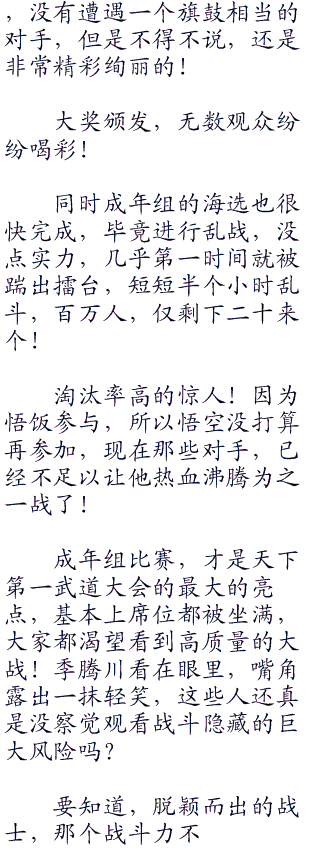 ，没有遭遇一个旗鼓相当的
对手，但是不得不说，还是
非常精彩绚丽的！
大奖颁发，无数观众纷
纷喝彩！
同时成年组的海选也很
快完成，毕竟进行乱战，没
点实力，几乎第一时间就被
踹出擂台，短短半个小时乱
斗，百万人，仅剩下二十来
个！
淘汰率高的惊人！因为
悟饭参与，所以悟空没打算
再参加，现在那些对手，已
经不足以让他热血沸腾为之
一战了！
成年组比赛，才是天下
第一武道大会的最大的亮
点，基本上席位都被坐满，
大家都渴望看到高质量的大
战！季腾川看在眼里，嘴角
露出一抹轻笑，这些人还真
是没察觉观看战斗隐藏的巨
大风险吗？
要知道，脱颖而出的战
士，那个战斗力不